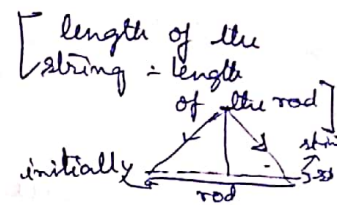 length of the
string = length
of the rod
initially
rod